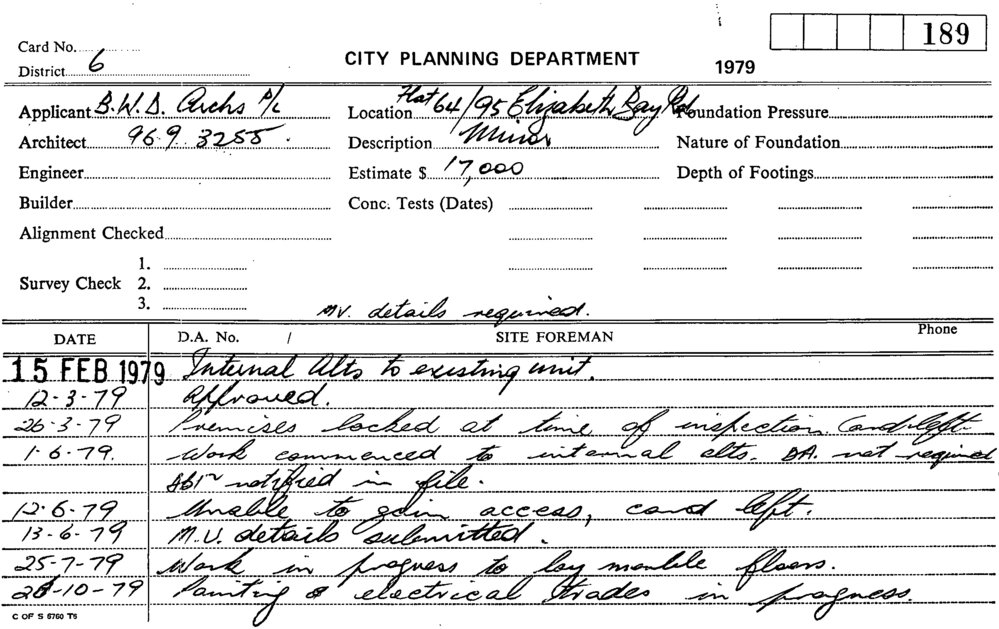 189
Card No.
District 6
CITY PLANNING DEPARTMENT
1979
Applicant B.W.D. Archs P/L
Location Flat 64/95 Elizabeth Bay Rd
Foundation Pressure
Architect 969 3255
Description Minor
Nature of Foundation
Engineer
Estimate $ 17,000
Depth of Footings
Builder
Conc. Tests (Dates)
Alignment Checked
Survey Check
1.
2.
3.
M.V. details required.
DATE
D.A. No. /
SITE FOREMAN
Phone
15 FEB 1979 Internal Alts to existing unit.
12-3-79 Approved.
26-3-79 Premises locked at time of inspection. Card left.
1-6-79. Work commenced to internal alts. DA. not required
notified in file.
12-6-79 Unable to gain access, card left.
13-6-79 M.V. details submitted.
25-7-79 Work in progress to lay marble floors.
-10-79 Painting & electrical trades in progress.
C OF S 6760 T6